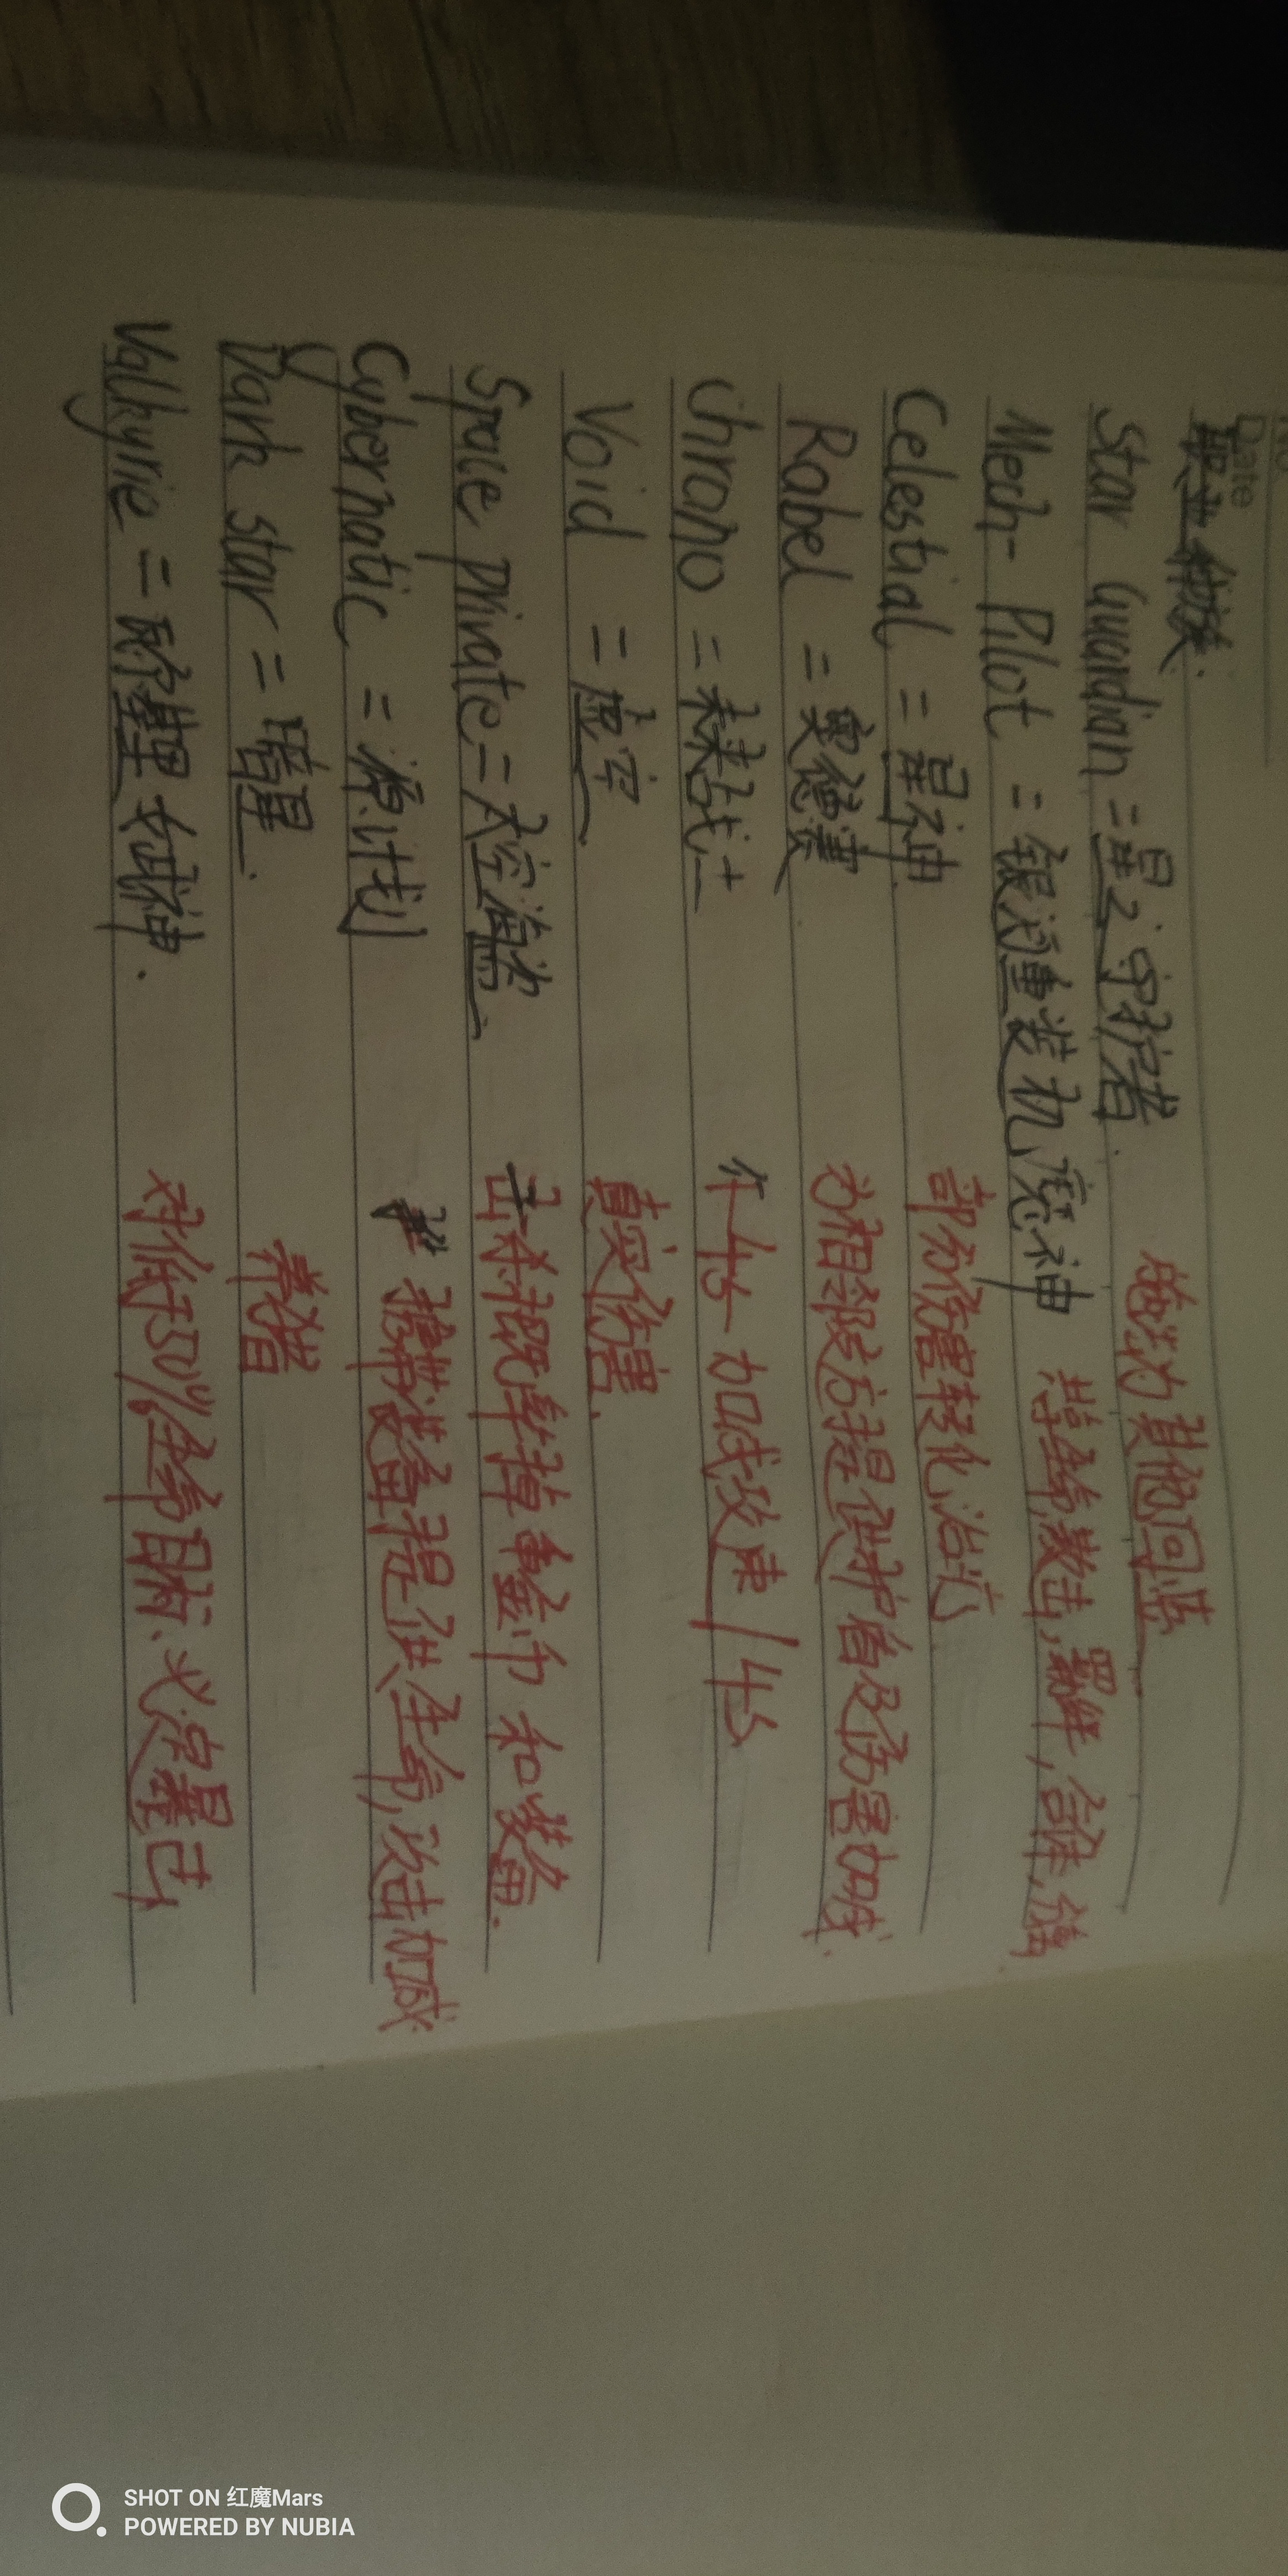 Date
种族.
Star Guardian = 星之守护者. 施法为其他回蓝
Mech-Pilot = 银河重装机魔神
Celestial = 星神. 部份伤害转化治疗
Rabel = 奥德赛 为相邻友方提供护盾及伤害加成.
Chrono = 未来战士 加成攻速 / 4s
Void = 虚空 真实伤害.
Space Pirate = 太空海盗. 击杀概率掉金币 和装备.
Cybernatic = 源计划 携带装备提供生命,攻击加成
Dark Star = 暗星.
Valkyrie = 女武神. 对低于50%生命目标必定暴击
SHOT ON 红魔Mars
POWERED BY NUBIA